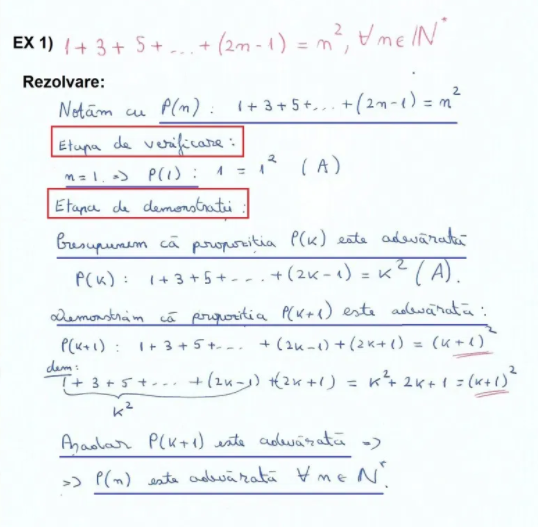 EX 1) 1 + 3 + 5 + ... + (2n-1) = n², ∀ n ∈ ℕ*
Rezolvare:
Notăm cu P(n) : 1 + 3 + 5 + ... + (2n-1) = n²
Etapa de verificare :
n = 1. => P(1) : 1 = 1² (A)
Etapa de demonstrații :
Presupunem că propoziția P(k) este adevărată
P(k) : 1 + 3 + 5 + ... + (2k-1) = k² (A).
Demonstrăm că propoziția P(k+1) este adevărată :
P(k+1) : 1 + 3 + 5 + ... + (2k-1) + (2k+1) = (k+1)²
dem:
1 + 3 + 5 + ... + (2k-1) + (2k+1) = k² + 2k + 1 = (k+1)²
k²
Așadar P(k+1) este adevărată =>
=> P(n) este adevărată ∀ n ∈ ℕ*.